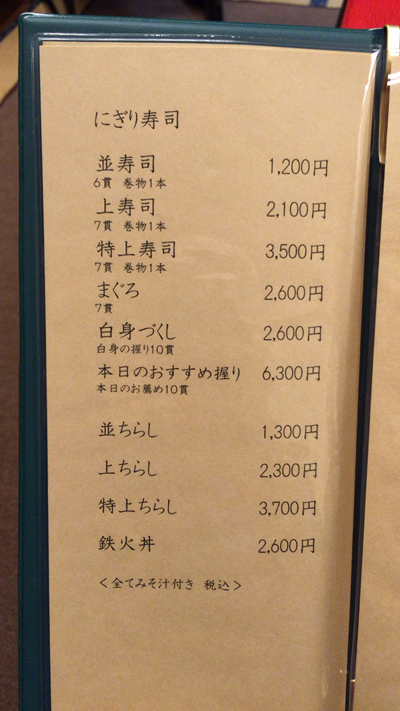 にぎり寿司
並寿司 1,200円
6貫 巻物1本
上寿司 2,100円
7貫 巻物1本
特上寿司 3,500円
7貫 巻物1本
まぐろ 2,600円
7貫
白身づくし 2,600円
白身の握り10貫
本日のおすすめ握り 6,300円
本日のお薦め10貫
並ちらし 1,300円
上ちらし 2,300円
特上ちらし 3,700円
鉄火丼 2,600円
<全てみそ汁付き 税込>